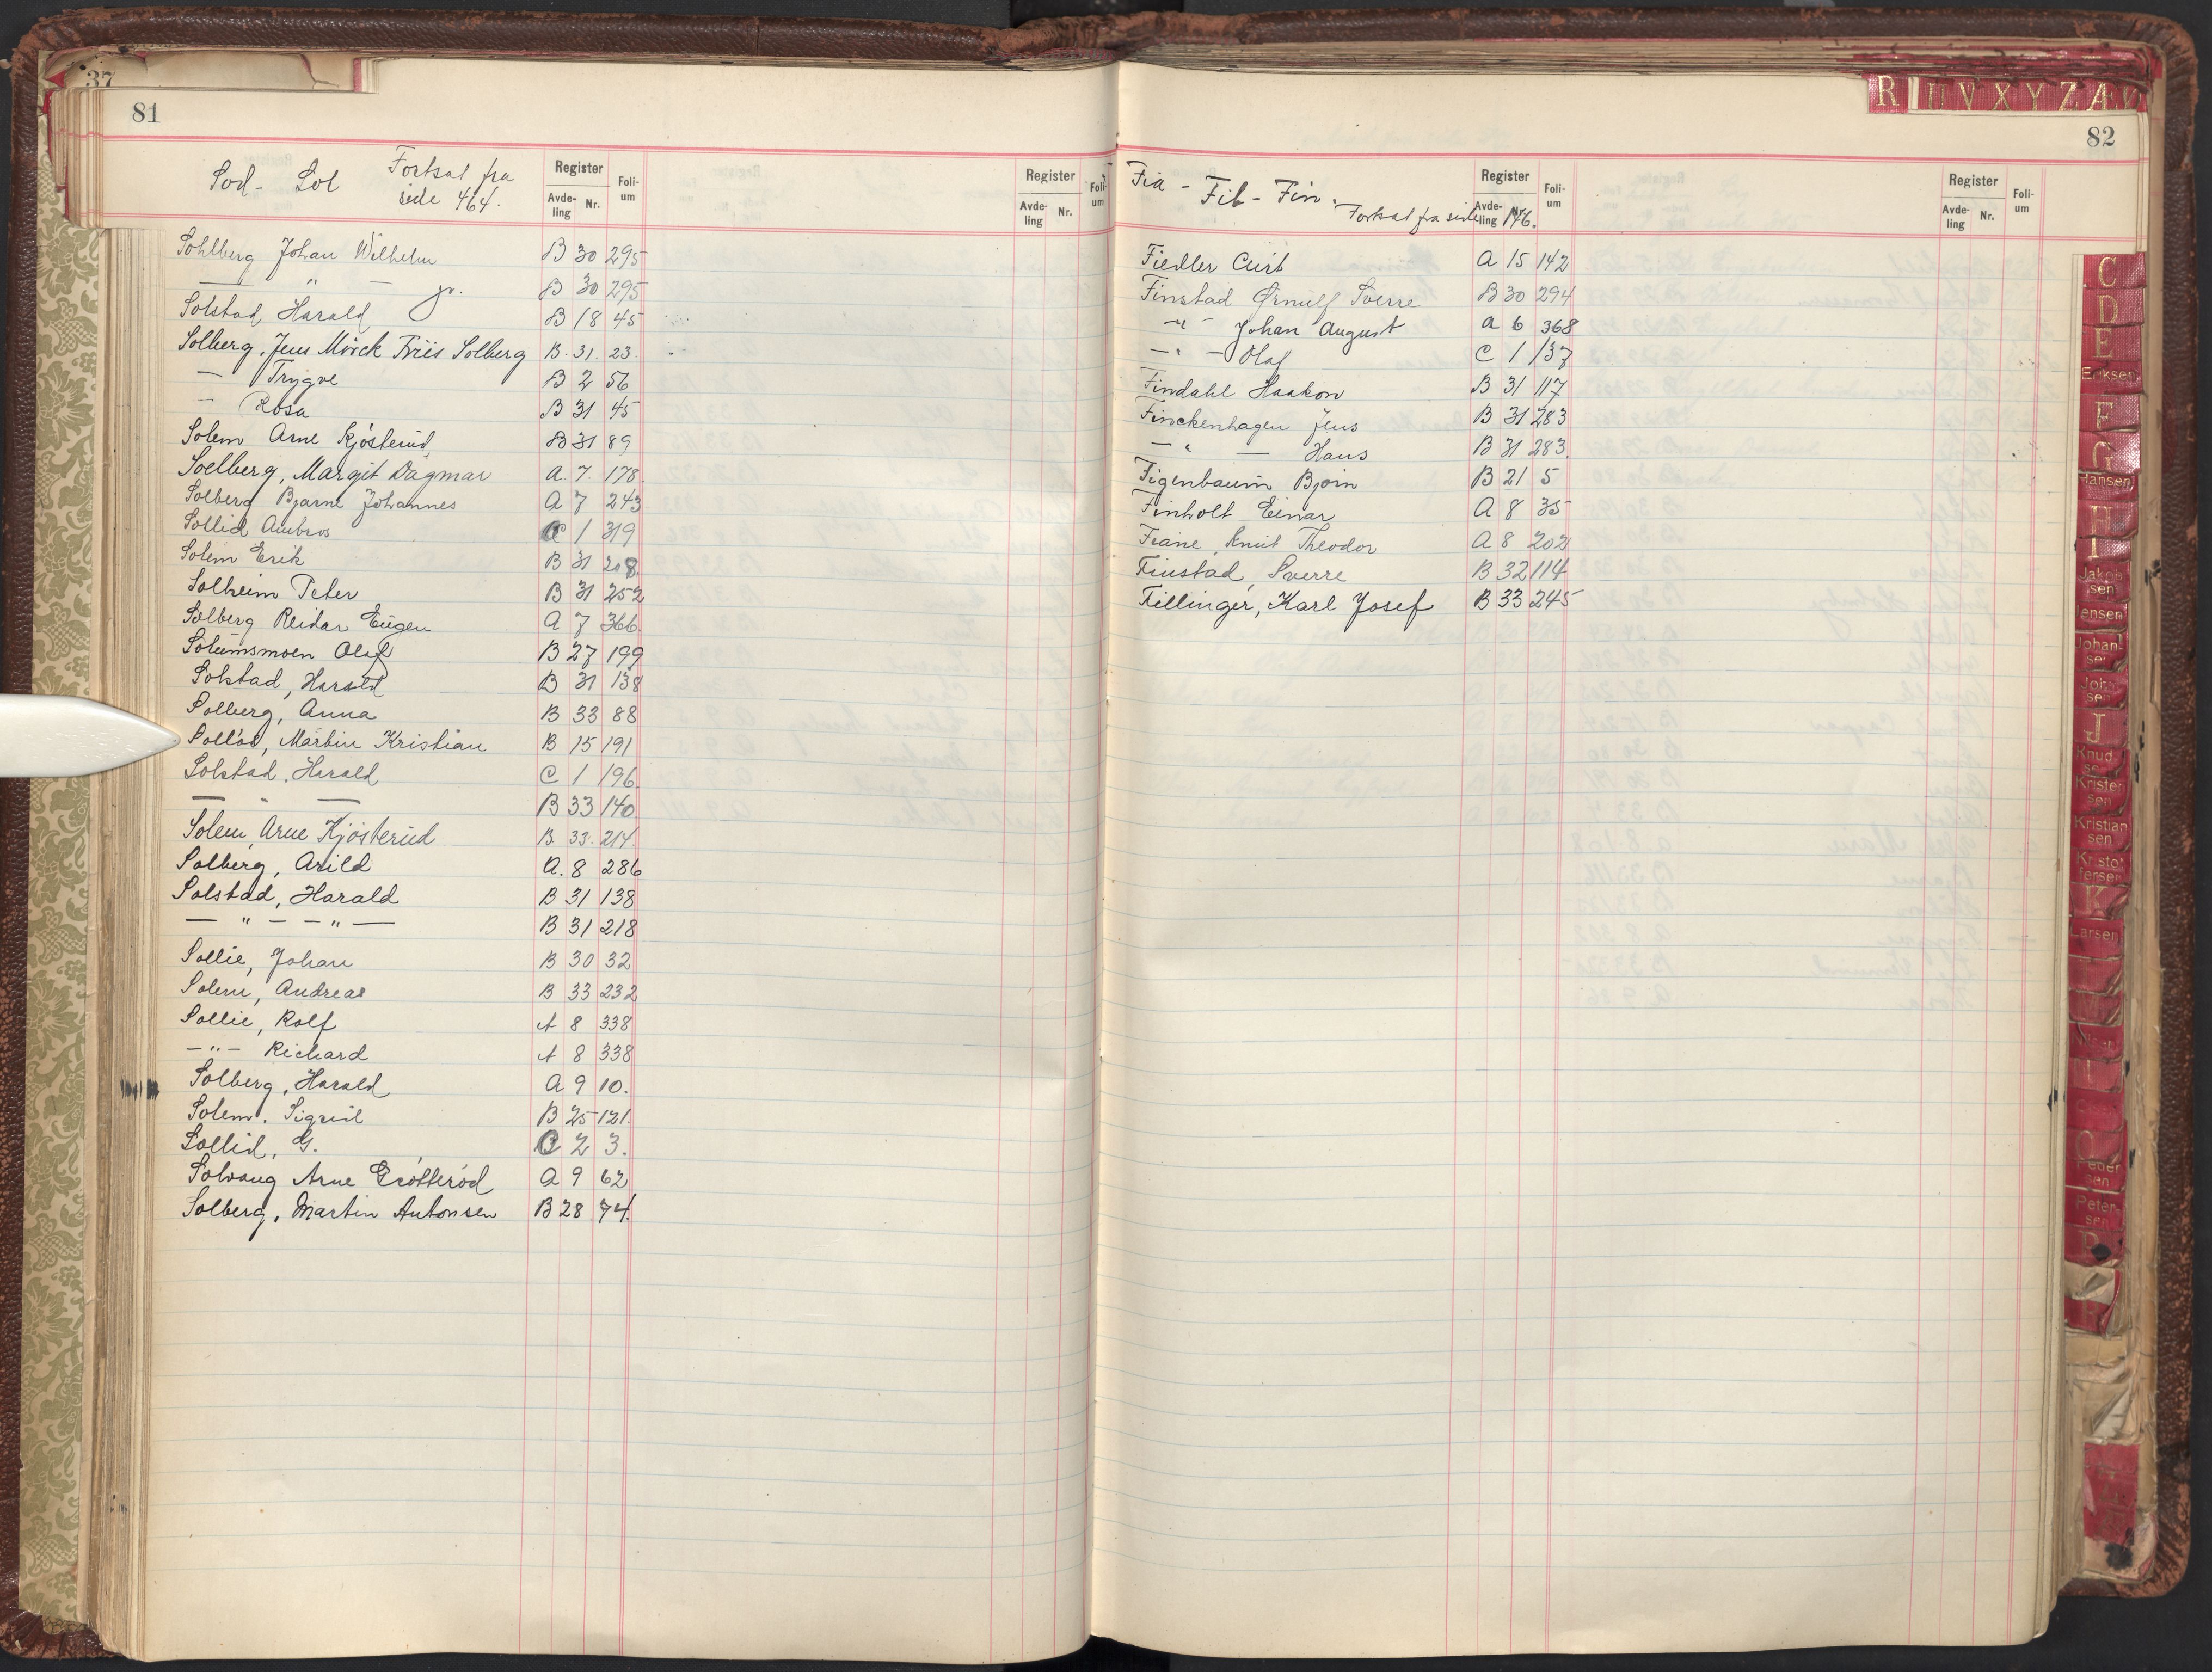 37
81
Sod - Sol Fortsat fra
side 464.
Register Foli-
um
Avde-
ling Nr.
Register Foli-
um
Avde-
ling Nr.
Sohlberg Johan Wilhelm B 30 295
— " — jr. B 30 295
Solstad Harald B 18 45
Solberg, Jens Mörck Friis Solberg B. 31. 23.
— Trygve B 2 56
— Rosa B 31 45
Solem Arne Kjösterud, B 31 89
Soelberg, Margit Dagmar A. 7. 178
Solberg Bjarne Johannes A 7 243
Sollid Ambros C 1 319
Solem Erik B 31 208.
Solheim Peter B 31 252
Solberg Reidar Eugen A 7 366.
Solumsmoen Olaf B 27 199
Solstad, Harald B 31 138
Solberg, Anna B 33 88
Solløs, Martin Kristian B 15 191
Solstad, Harald C 1 196
— " — B 33 140
Solem, Arne Kjösterud B 33. 214.
Solberg, Arild A. 8 286
Solstad, Harald B 31 138
— " — — " — B 31 218
Sollie, Johan B 30 32
Solem, Andreas B 33 232
Sollie, Rolf A 8 338
— " — Richard A 8 338
Solberg, Harald A 9 10.
Solem. Sigrid B 25 121.
Sollid, G. C 2 3.
Solvang Arne Grötteröd A 9 62
Solberg, Martin Antonsen B 28 74.
82
Fia - Fib - Fin. Fortsat fra side 146.
Register Foli-
um
Avde-
ling Nr.
Register Foli-
um
Avde-
ling Nr.
Fiedler Curt A 15 142
Finstad Ørnulf Sverre B 30 294
— " — Johan August A 6 368
— " — Olaf C 1 137
Findahl Haakon B 31 117
Finckenhagen Jens B 31 283
— " — Hans B 31 283.
Figenbaum Bjørn B 21 5
Finholt Einar A 8 35
Fiane, Knut Theodor A 8 202
Finstad, Sverre B 32 114
Fillinger, Karl Josef B 33 245
R U V X Y Z Æ Ø
C
D
E
Eriksen
F
G
Hansen
H
I
Jakob
sen
Jensen
Johan-
sen
John
sen
J
Knud
sen
Krister
sen
Kristian
sen
Kristof
fersen
K
Larsen
O
Peder
sen
Peter-
sen
P